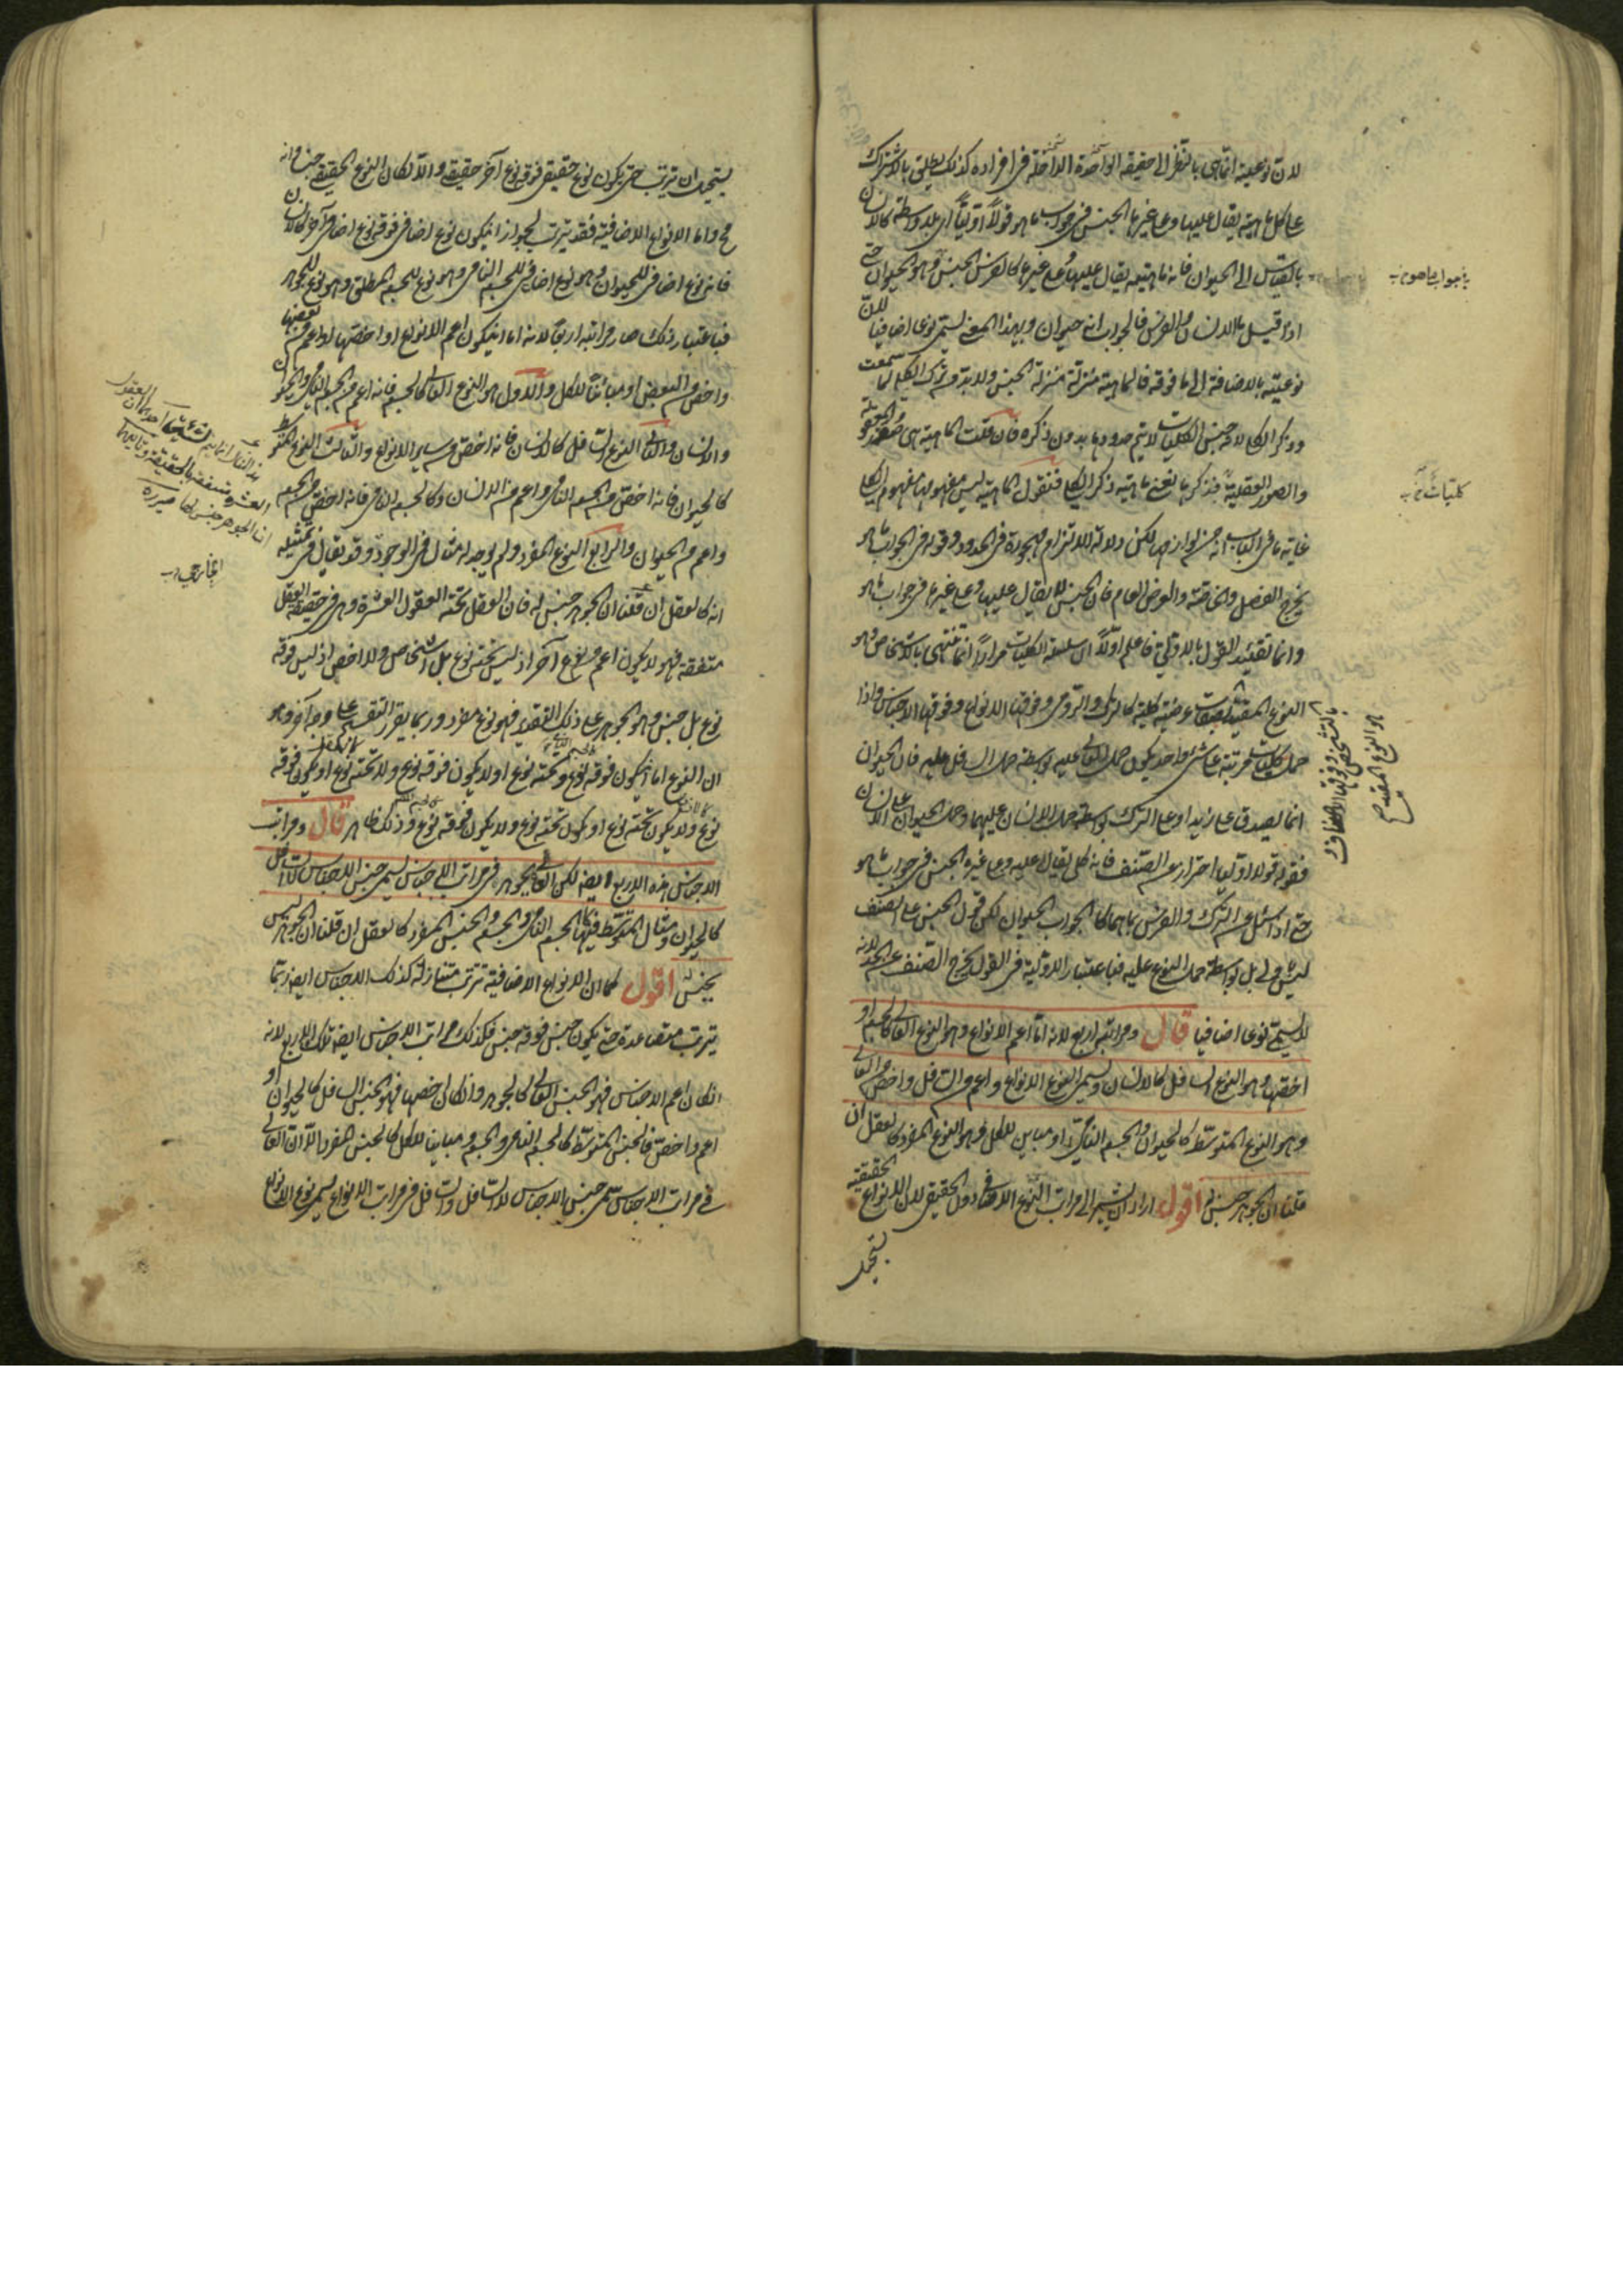 لان نوعيته انما هي بالنظر الى حقيقة الواحدة الداخلة في افراده كذلك يطلق بالاشتراك
على كل ماهية يقال عليها وعلى غيرها الجنس في جواب ما هو قولا اوليا اي بلا واسطة كالانسان
بالقياس الى الحيوان فانه ماهية يقال عليها وعلى غيرها كالفرس الجنس وهو الحيوان حتى
اذا قيل ما الانسان والفرس فالجواب انه حيوان وبهذا المعنى يسمى نوعا اضافيا لان
نوعيته بالاضافة الى ما فوقه فالماهية منزلة منزلة الجنس ولا بد من ترك الكل لما سمعت
وذكر الكلي لانه جنس الكليات لا يتم حدودها بدون ذكره فان قلت الماهية هي
والصور العقلية فذكرها يغني عن ذكر الكلي فنقول الماهية ليس مفهومها مفهوم الكلي
غاية ما في الباب انه من لوازمها لكن دلالة الالتزام مهجورة في الحدود وقوله في جواب ما هو
يخرج الفصل والخاصة والعرض العام فان الجنس لا يقال عليها وعلى غيرها في جواب ما هو
واما تقييد القول بالاولي فاعلم اولا ان سلسلة الكليات مرارا انما تنتهي بالاشخاص وهو
النوع المقيد بصفات عرضية كلية كالترك والرومي وفوقها الانواع وفوقها الاجناس واذا
حمل كليات مرتبة على شيء واحد يكون حمل العالي عليه بواسطة حمل السافل عليه فان الحيوان
انما يصدق على زيد او على الترك بواسطة حمل الانسان عليهما وحمل الحيوان على الانسان
فقوله قولا اوليا احتراز عن الصنف فانه كلي يقال عليه وعلى غيره الجنس في جواب ما هو
حتى اذا سئل عن الترك والفرس بما هما كان الجواب الحيوان لكن قول الجنس على الصنف
ليس باولي بل بواسطة حمل النوع عليه فباعتبار الاولية في القول يخرج الصنف عن الحد لانه
لا يسمى نوعا اضافيا قال ومراتبه اربع لانه اما اعم الانواع وهو النوع العالي كالجسم او
اخصها وهو النوع السافل كالانسان ويسمى نوع الانواع او اعم من السافل واخص من العالي
وهو النوع المتوسط كالحيوان والجسم النامي او مباين للكل وهو النوع المفرد كالعقل ان
قلنا ان الجوهر جنس له اقول اراد ان يشير الى مراتب النوع الاضافي دون الحقيقي لان الانواع الحقيقية
يستحيل
في جواب ما هو
كليات
بالتشخص وفوقها الاصناف و
هو النوع المقيد
يستحيل ان يترتب حتى يكون نوع حقيقي فوقه نوع آخر حقيقي والا لكان النوع الحقيقي جنسا وانه
مح واما الانواع الاضافية فقد يترتب لجواز ان يكون نوع اضافي فوقه نوع اضافي آخر كالانسان
فانه نوع اضافي للحيوان وهو نوع اضافي للجسم النامي وهو نوع للجسم المطلق وهو نوع للجوهر
فباعتبار ذلك صار مراتبه اربعا لانه اما ان يكون اعم الانواع او اخصها او اعم من بعضها
واخص من البعض او مباينا للكل والاول هو النوع العالي كالجسم فانه اعم من الجسم النامي والحيوان
والانسان والثاني النوع السافل كالانسان فانه اخص من ساير الانواع والثالث النوع المتوسط
كالحيوان فانه اخص من الجسم النامي واعم من الانسان وكالجسم النامي فانه اخص من الجسم
واعم من الحيوان والرابع النوع المفرد ولم يوجد له مثال في الوجود وقد يقال في تمثيله
انه كالعقل ان قلنا ان الجوهر جنس له فان العقل تحته العقول العشرة وهي في حقيقة العقل
متفقة فهو لا يكون اعم من نوع آخر اذ ليس تحته نوع بل اشخاص ولا اخص اذ ليس فوقه
نوع بل جنس وهو الجوهر على ذلك التقدير فهو نوع مفرد وربما يقرر التقسيم على وجه آخر وهو
ان النوع اما ان يكون فوقه نوع وتحته نوع او لا يكون فوقه نوع ولا تحته نوع او يكون فوقه
نوع ولا يكون تحته نوع او يكون تحته نوع ولا يكون فوقه نوع وذلك ظاهر قال ومراتب
الاجناس هذه الاربع ايضا لكن العالي كالجوهر في مراتب الاجناس يسمى جنس الاجناس لا السافل
كالحيوان ومثال المتوسط فيها الجسم النامي والجسم والجنس المفرد كالعقل ان قلنا ان الجوهر ليس
بجنس له اقول كما ان الانواع الاضافية تترتب متنازلة كذلك الاجناس ايضا ربما
يترتب متصاعدة حتى يكون جنس فوقه جنس فكذلك مراتب الاجناس ايضا تلك الاربع لانه
ان كان اعم الاجناس فهو الجنس العالي كالجوهر وان كان اخصها فهو الجنس السافل كالحيوان او
اعم واخص فالجنس المتوسط كالجسم النامي والجسم او مباينا للكل كالجنس المفرد الا ان العالي
في مراتب الاجناس يسمى جنس الاجناس لا السافل والسافل في مراتب الانواع يسمى نوع الانواع
العشرة متفقة بالحقيقة وثانيهما
ان الجوهر جنس لها